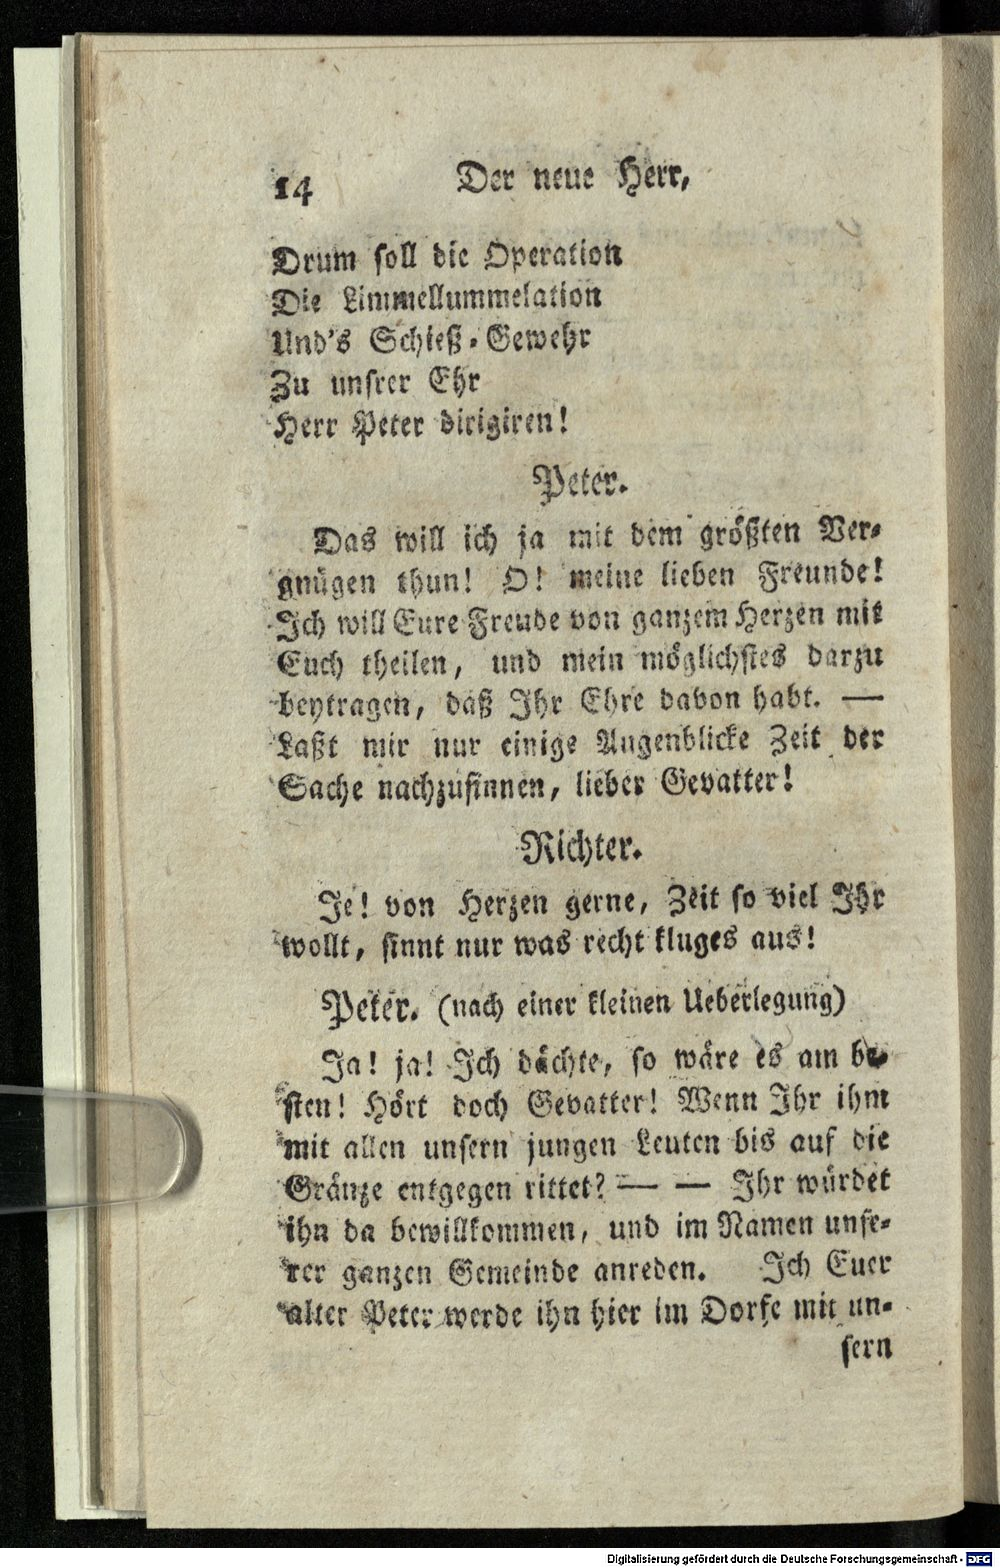 14 Der neue Herr,
Drum soll die Operation
Die Limmellummelation
Und's Schieß-Gewehr
Zu unsrer Ehr
Herr Peter dirigiren!
Peter.
Das will ich ja mit dem größten Ver-
gnügen thun! O! meine lieben Freunde!
Ich will Eure Freude von ganzem Herzen mit
Euch theilen, und mein möglichstes darzu
beytragen, daß Ihr Ehre davon habt. —
Laßt mir nur einige Augenblicke Zeit der
Sache nachzusinnen, lieber Gevatter!
Richter.
Je! von Herzen gerne, Zeit so viel Ihr
wollt, sinnt nur was recht kluges aus!
Peter. (nach einer kleinen Ueberlegung)
Ja! ja! Ich dächte, so wäre es am be-
sten! Hört doch Gevatter! Wenn Ihr ihm
mit allen unsern jungen Leuten bis auf die
Gränze entgegen rittet? — — Ihr würdet
ihn da bewillkommen, und im Namen unse-
rer ganzen Gemeinde anreden. Ich Euer
alter Peter werde ihn hier im Dorfe mit un-
sern
Digitalisierung gefördert durch die Deutsche Forschungsgemeinschaft - DFG